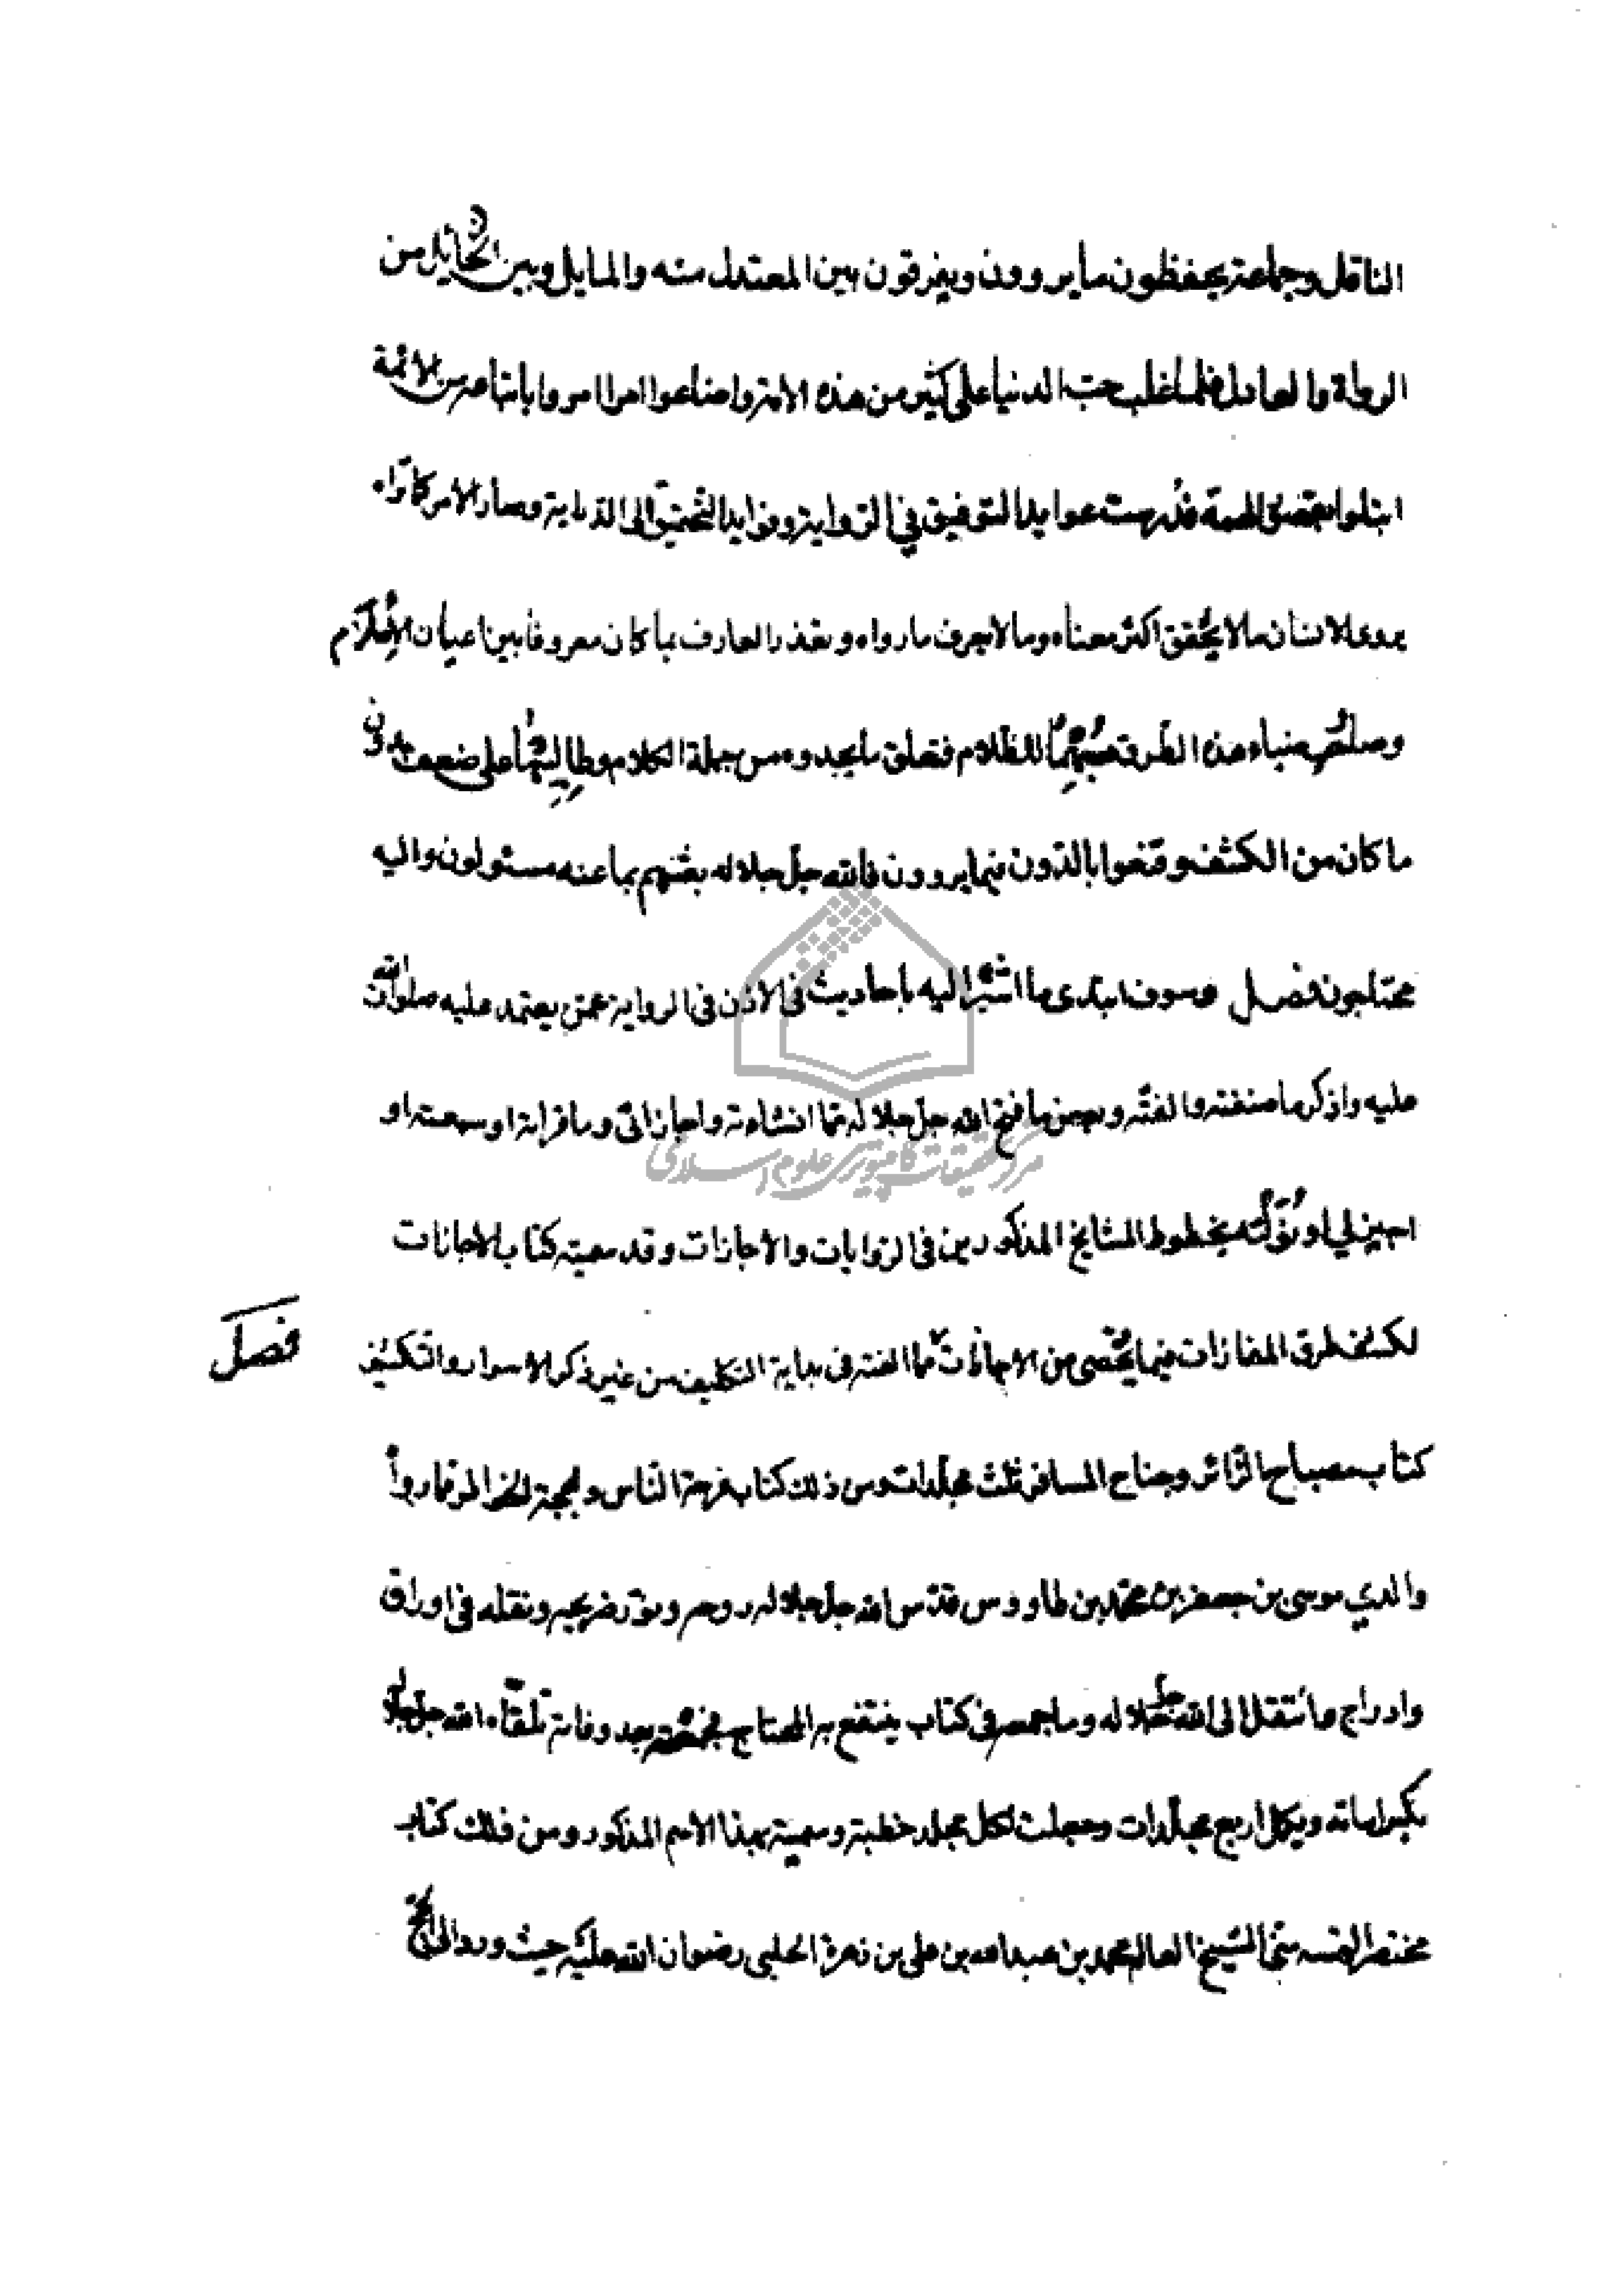 الناقل وجماعة يحفظون ما يروون ويفرقون بين المعتدل منه والمايل وبين الحايل من
الرواة والعادل فلما غلب حب الدنيا على كثير من هذه الامة واضاعوا ما امروا باتباعه من الائمة
ابتلوا بقصور الهمة فدرست عوايد التوفيق في الرواية وفوايد التحقيق الى الدراية وصار الامر كما تراه
يروى الانسان ما لا يحقق اكثر معناه وما لا يعرف ما رواه وتعذر العارف بما كان معروفا بين اعيان الاسلام
ضياء هذه الطرق للظلام فتعلق ما يجدوه من جملة الكلام على ضعف
ما كان من الكشف وقنعوا بالدون فيما يروون فالله جل جلاله بعثهم بما عنه مسئولون واليه
محتاجون فصل وسوف ابتدى ما اشير اليه باحاديث في الاذن في الرواية عمن يعتمد عليه صلوات الله
عليه واذكر ما صنفته والفته وبعض ما فتح الله جل جلاله مما انشاءته واجازاتى وما قراته او سمعته او
اجيز لي او نوّلته بخطوط المشايخ المذكورين في الروايات والاجازات وقد سميته كتاب الاجازات
لكشف طرق المفازات فيما يخصى من الاجازات مما الفته فى بداية التكليف من غير ذكر الاسرار والتكشيف
فصل
كتاب مصباح الزائر وجناح المسافر ثلث مجلدات ومن ذلك كتاب فرحة الناس وبهجة الخواطر مما رواه
والدي موسى بن جعفر بن محمد بن طاووس قدس الله جل جلاله روحه ونور ضريحه ونقله في اوراق
وادراج وانتقل الى الله جل جلاله وما جمعه في كتاب ينتفع به المحتاج فجمعته بعد وفاته تلقاه الله جل جلاله
ويكمل اربع مجلدات وجعلت لكل مجلد خطبة وسميته بهذا الاسم المذكور ومن ذلك كتاب
الشيخ العالم محمد بن عبدالله بن على بن زهرة الحلبي رضوان الله عليه حيث ورد الى الحج